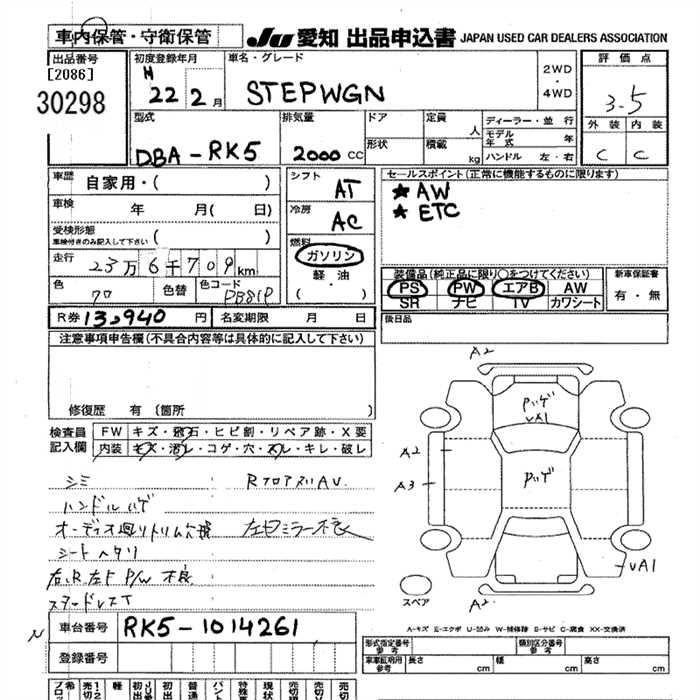 車内保管・守衛保管
JU 愛知 出品申込書 JAPAN USED CAR DEALERS ASSOCIATION
出品番号
[2086]
30298
初度登録年月
H 22 2月
車名・グレード
STEPWGN
2WD
・
4WD
評価点
3.5
外装 内装
C C
型式
DBA-RK5
排気量
2000 CC
ドア
形状
定員
人
積載
kg
ディーラー・並行
モデル年式 年
ハンドル 左・右
車歴
自家用・( )
車検
年 月( 日)
受検形態
車検付きのみ記入して下さい ( )
走行
23万6千709km
色
色替
色コード
PB81P
シフト
AT
冷房
AC
燃料
ガソリン
軽油
( ・ )
セールスポイント(正常に機能するものに限ります)
★ AW
★ ETC
装備品(純正品に限り○をつけてください)
PS PW エアB AW
SR ナビ TV カワシート
新車保証書
有・無
R券 13,940円
名変期限 月 日
後日品
注意事項申告欄(不具合内容等は具体的に記入して下さい)
修復歴 有 〔箇所 〕
検査員
記入欄
FW キズ・飛石・ヒビ割・リペア跡・X要
内装 キズ・汚レ・コゲ・穴・スレ・キレ・破レ
シミ
ハンドルハゲ
シートヘタリ
スタッドレスT
A2
A2
A3
A2
スペア
A-キズ E-エクボ U-凹み W-補修跡 S-サビ C-腐食 XX-交換済
N
車台番号
RK5-1014261
登録番号
型式指定番号
参考
類別区分番号
参考
車車証明用
参考
長さ cm
幅 cm
高さ cm